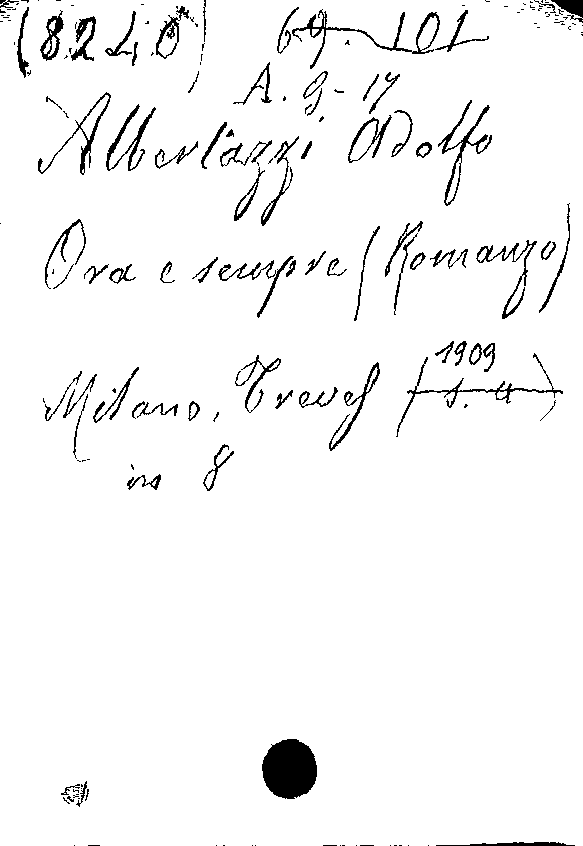 (8240) 69.101
A. 9-17
Albertazzi Adolfo
Ora e sempre (Romanzo)
1909
Milano, Treves (s. a)
in 8